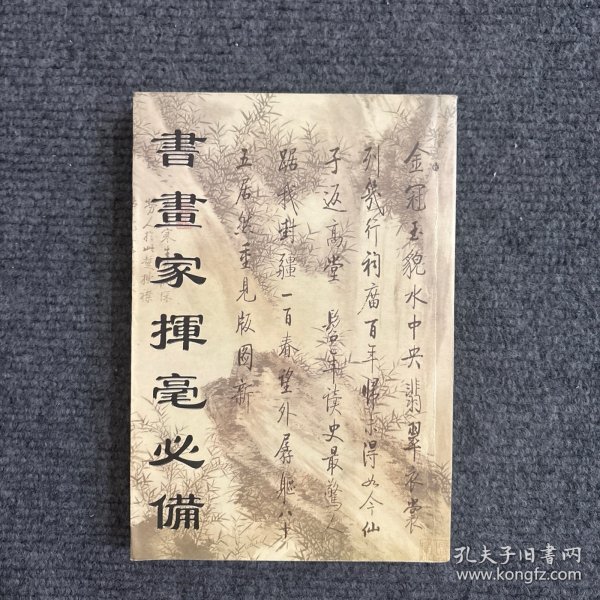 書畫家揮毫必備
金冠玉貌水中央翡翠衣裳
列幾行祠廟百年歸宗得如今仙
子返高堂 兒輩讀史最驚人
踞我樹疆一百春望外孱軀八十
五居然重見版图新
孔夫子旧書网
www.kongfz.com